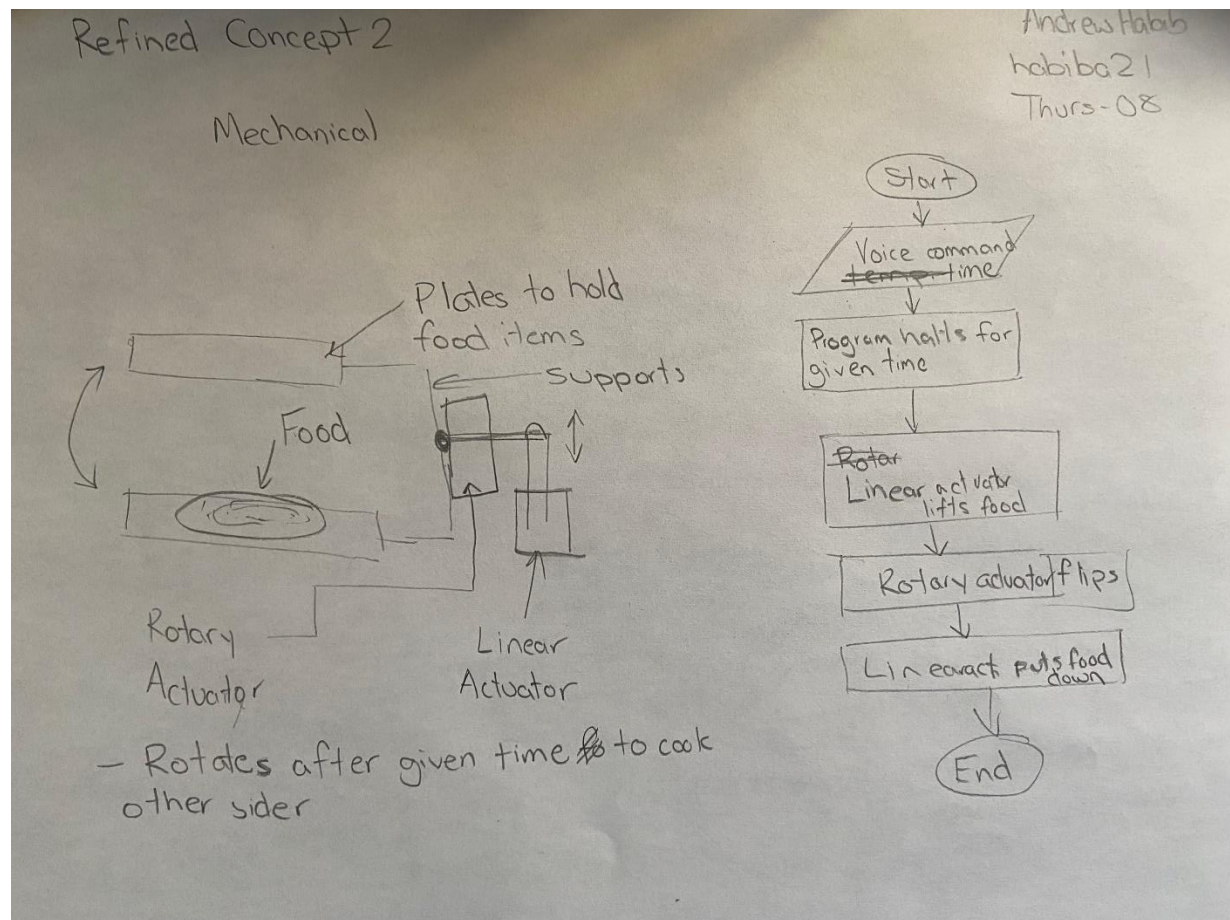 Refined Concept 2
Andrew Habib
habiba21
Thurs-08
Mechanical
Plates to hold
food items
Supports
Food
Rotary
Actuator
Linear
Actuator
- Rotates after given time to cook
other sider
Start
Voice command
temp time
Program halts for
given time
Rotar
Linear actuator
lifts food
Rotary actuator flips
Linearact puts food
down
End